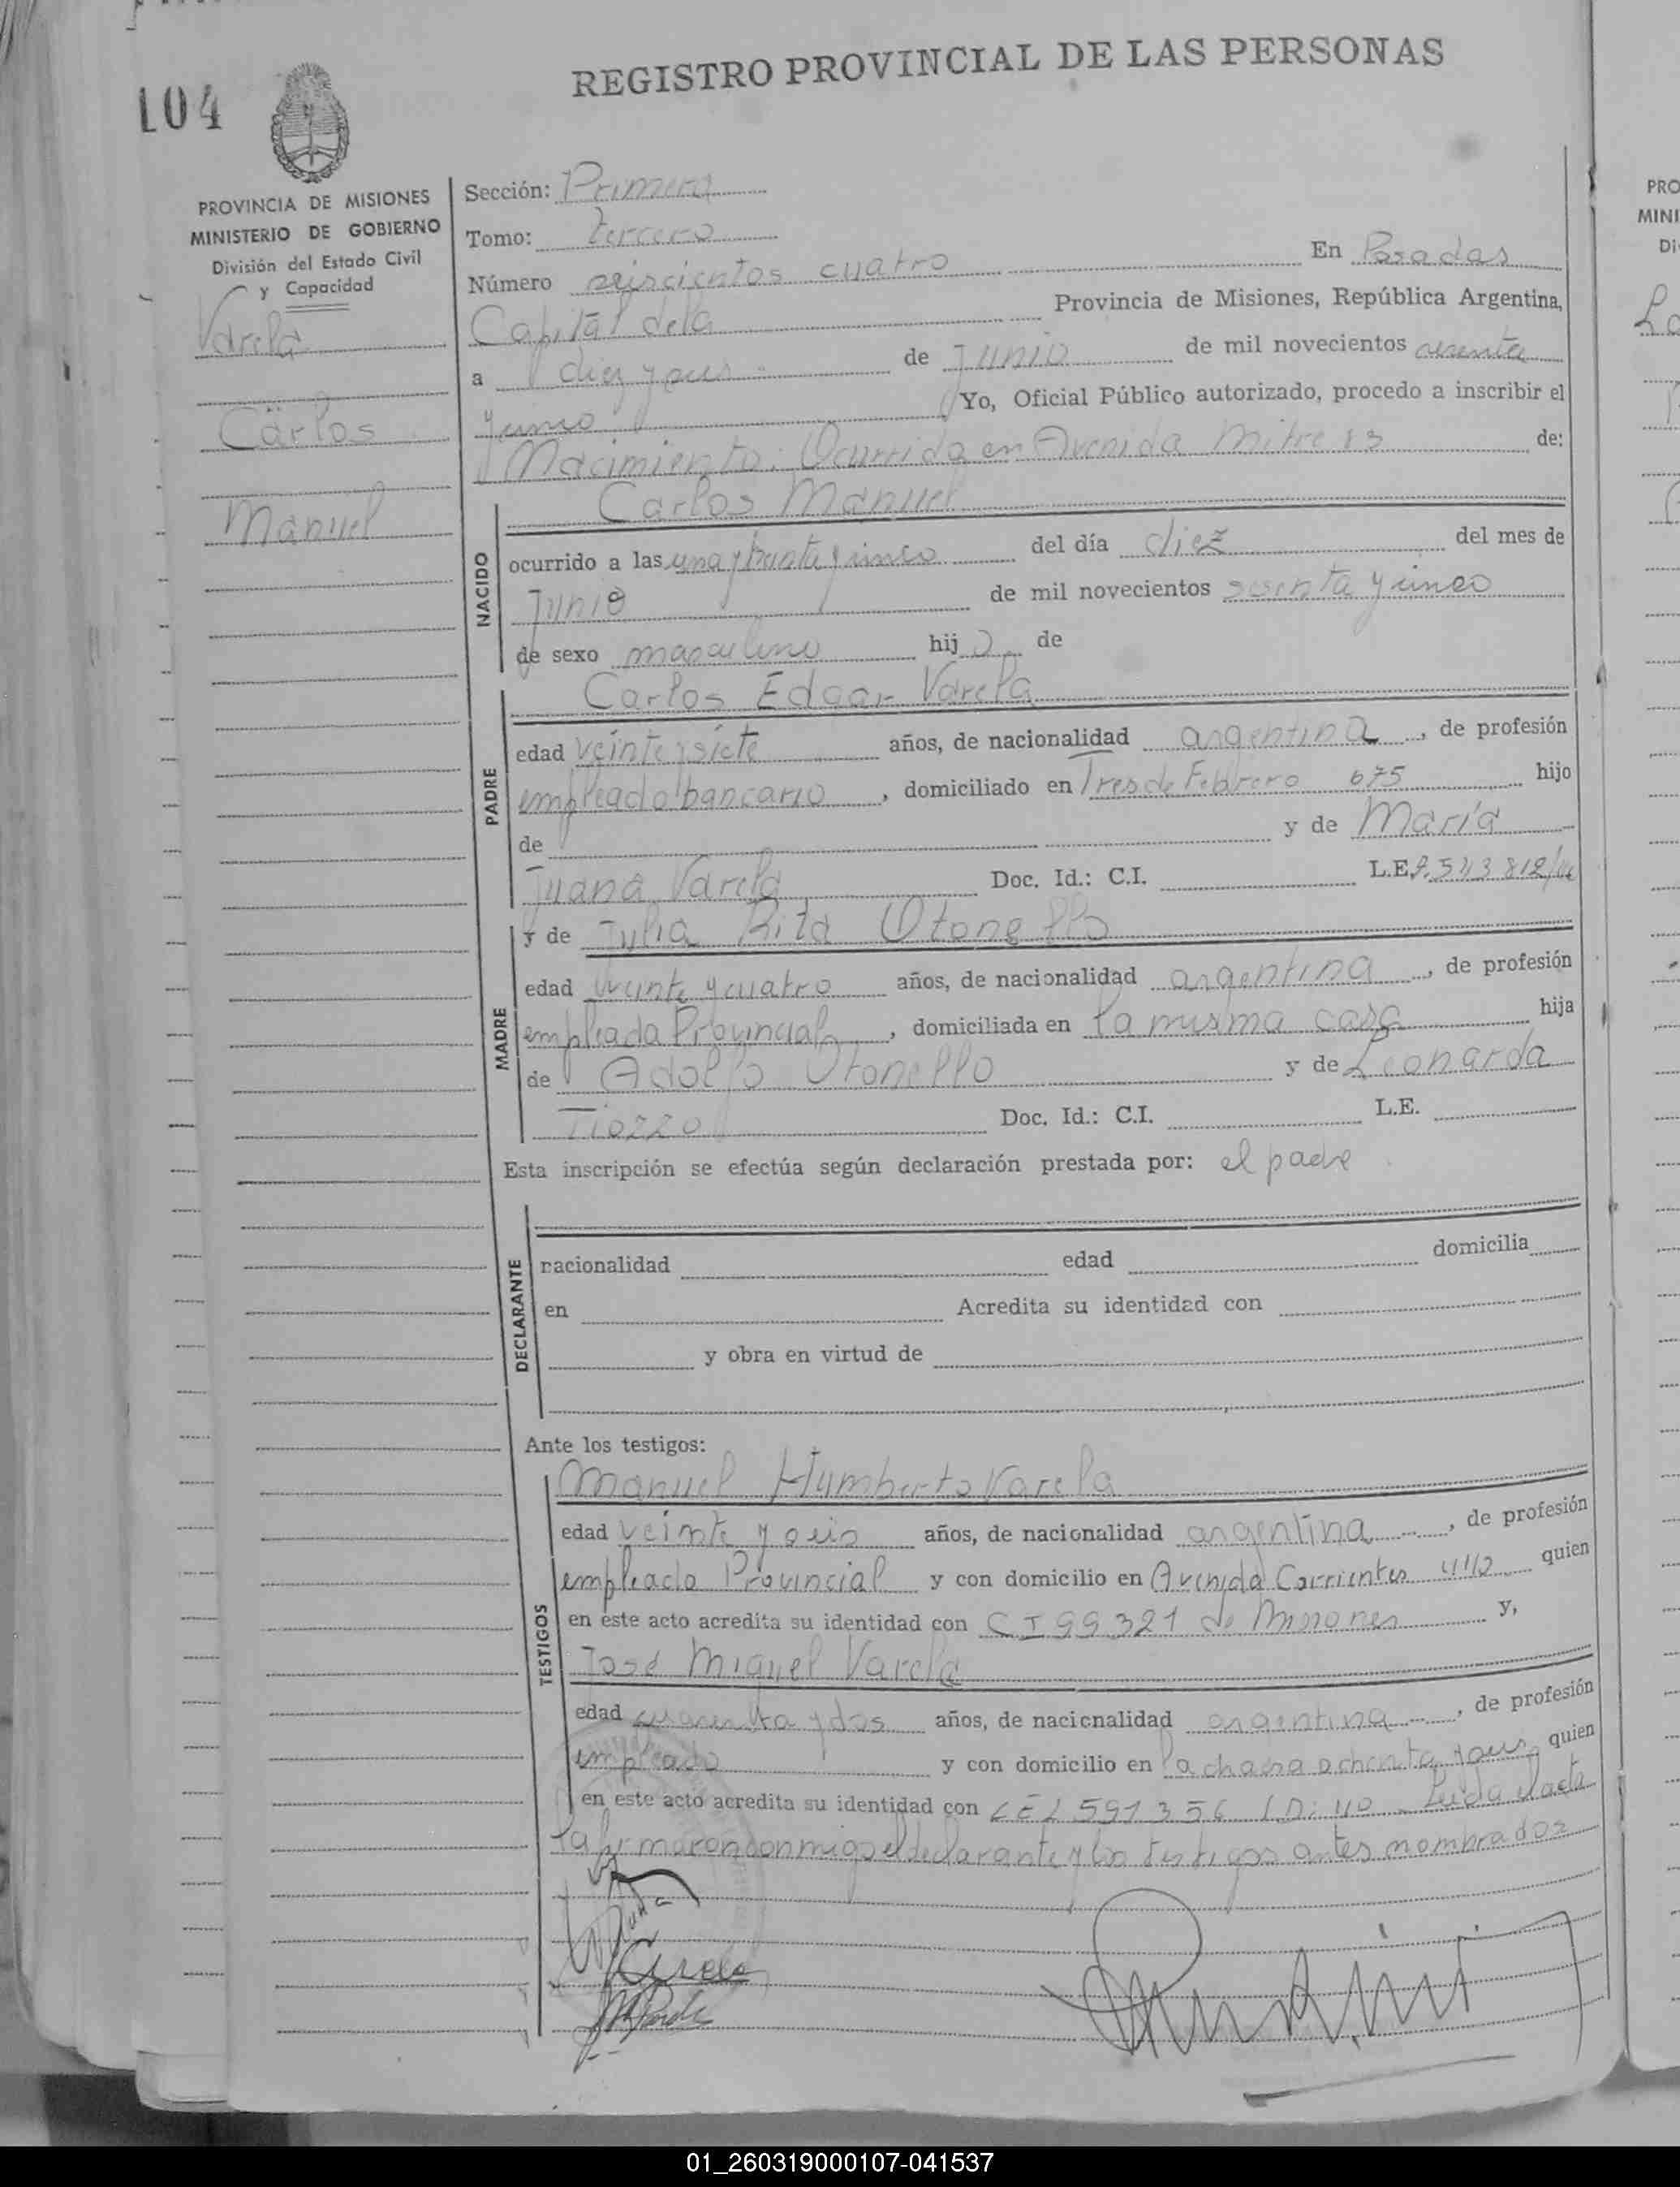 REGISTRO PROVINCIAL DE LAS PERSONAS
104
PROVINCIA DE MISIONES
MINISTERIO DE GOBIERNO
División del Estado Civil
y Capacidad
Varela
Carlos
Manuel
Sección: Primera
Tomo: tercero
Número seiscientos cuatro En Posadas
Capital de la Provincia de Misiones, República Argentina,
a diez y seis de Junio de mil novecientos sesenta
y cinco Yo, Oficial Público autorizado, procedo a inscribir el
Nacimiento: Ocurrido en Avenida Mitre 83 de:
NACIDO
Carlos Manuel
ocurrido a las una y treinta y cinco del día diez del mes de
Junio de mil novecientos sesenta y cinco
de sexo masculino hijo de
PADRE
Carlos Edgar Varela
edad veinte y siete años, de nacionalidad argentina, de profesión
empleado bancario, domiciliado en Tres de Febrero 675 hijo
de y de María
Juana Varela Doc. Id.: C.I. L.E.
MADRE
y de Julia Rita Otonello
edad veinte y cuatro años, de nacionalidad argentina, de profesión
empleada Provincial, domiciliada en la misma casa hija
de Adolfo Otonello y de Leonarda
Tiozzo Doc. Id.: C.I. L.E.
Esta inscripción se efectúa según declaración prestada por: el padre
DECLARANTE
nacionalidad edad domicilia
en Acredita su identidad con
y obra en virtud de
Ante los testigos:
TESTIGOS
Manuel Humberto Varela
edad veinte y seis años, de nacionalidad argentina, de profesión
empleado Provincial y con domicilio en Avenida Corrientes quien
en este acto acredita su identidad con CI 99.321 de Misiones y,
José Miguel Varela
edad cuarenta y dos años, de nacionalidad argentina, de profesión
empleado y con domicilio en la chacra ochenta y seis quien
en este acto acredita su identidad con Leida el acta
la firmaron conmigo el declarante y los testigos antes nombrados
01_260319000107-041537